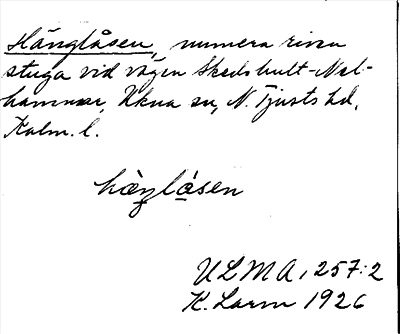 Hänglåsen, numera riven
stuga vid vägen Skedshult-Nel-
hammar, Ukna sn, N. Tjusts hd,
Kalm. l.
hàŋlå̀sen
ULMA, 257:2
K. Larm 1926